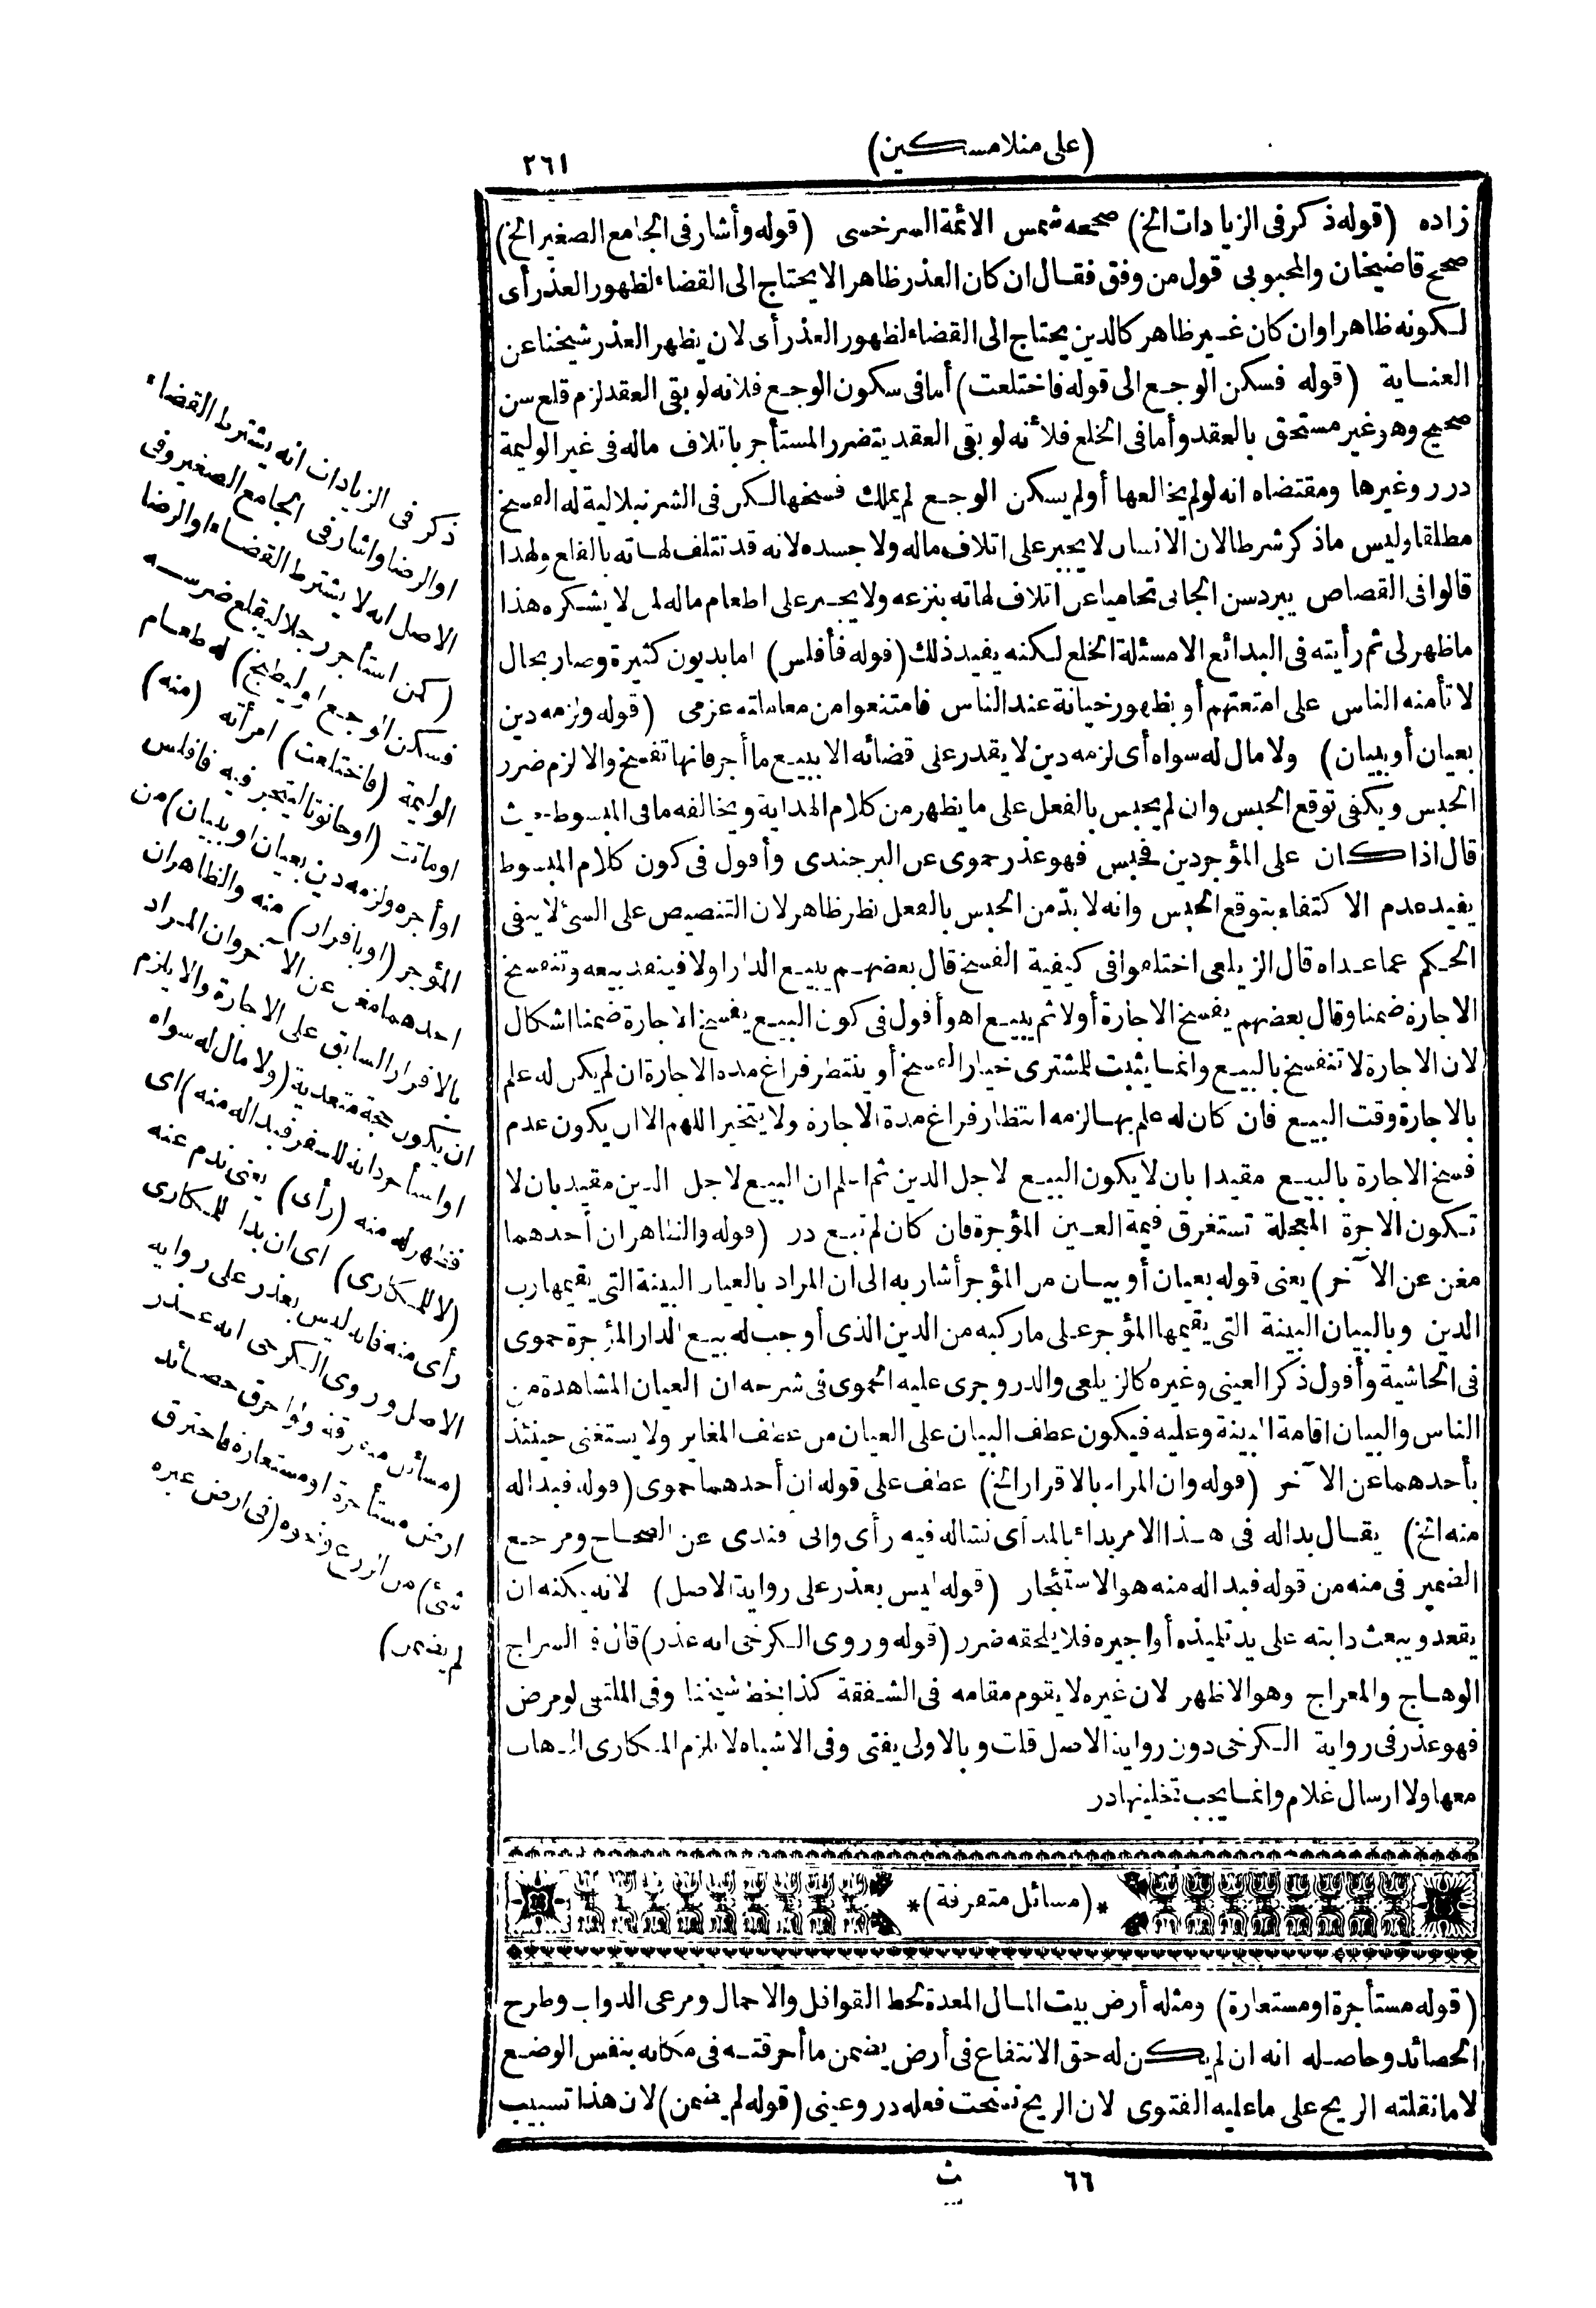 (على منلا مسكين)
٢٦١
زاده (قوله ذكر فى الزيادات الخ) صححه شمس الائمة السرخسى (قوله وأشار فى الجامع الصغير الخ)
صحح قاضيخان والمحبوبى قول من وفق فقال ان كان العذر ظاهرا لا يحتاج الى القضاء لظهور العذر أى
لكونه ظاهرا وان كان غير ظاهر كالدين يحتاج الى القضاء لظهور العذر أى لان يظهر العذر شيخنا عن
العناية (قوله فسكن الوجع الى قوله فاختلعت) أما فى سكون الوجع فلانه لو بقى العقد لزم قلع سن
صحيح وهو غير مستحق بالعقد وأما فى الخلع فلأنه لو بقى العقد يتضرر المستأجر باتلاف ماله فى غير الوليمة
درر وغيرها ومقتضاه انه لو لم يخالعها أو لم يسكن الوجع لم يملك فسخها لكن فى الشرنبلالية له الفسخ
مطلقا وليس ماذكر شرطا لان الانسان لا يجبر على اتلاف ماله ولا جسده لانه قد تتلف لهاته بالقلع ولهذا
قالوا فى القصاص يبرد سن الجانى تحاميا عن اتلاف لهاته بنزعه ولا يجبر على اطعام ماله لمن لا يشكره هذا
ما ظهر لى ثم رأيته فى البدائع الا مسئلة الخلع لكنه يفيد ذلك (قوله فأفلس) اما بديون كثيرة وصار بحال
لا تأمنه الناس على امتعتهم أو بظهور خيانة عند الناس فامتنعوا من معاملته عزمى (قوله ولزمه دين
بعيان أو ببيان) ولا مال له سواه أى لزمه دين لا يقدر على قضائه الا ببيع ما أجر فانها تفسخ والا لزم ضرر
الحبس ويكفى توقع الحبس وان لم يحبس بالفعل على ما يظهر من كلام الهداية ويخالفه ما فى المبسوط حيث
قال اذا كان على المؤجر دين فحبس فهو عذر حموى عن البرجندى وأقول فى كون كلام المبسوط
يفيد عدم الاكتفاء بتوقع الحبس وانه لا بد من الحبس بالفعل نظر ظاهر لان التنصيص على الشئ لا ينفى
الحكم عما عداه قال الزيلعى اختلفوا فى كيفية الفسخ قال بعضهم يبيع الدار اولا فينفذ بيعه وتنفسخ
الاجارة ضمنا وقال بعضهم يفسخ الاجارة أولا ثم يبيع اه وأقول فى كون البيع يفسخ الاجارة ضمنا اشكال
لان الاجارة لا تنفسخ بالبيع وانما يثبت للمشترى خيار الفسخ أو ينتظر فراغ مدة الاجارة ان لم يكن له علم
بالاجارة وقت البيع فان كان له علم بها لزمه انتظار فراغ مدة الاجارة ولا يتخير اللهم الا ان يكون عدم
فسخ الاجارة بالبيع مقيدا بان لا يكون البيع لاجل الدين ثم اعلم ان البيع لاجل الدين مقيد بان لا
تكون الاجرة المعجلة تستغرق قيمة العين المؤجرة فان كان لم تبع در (قوله والظاهر ان أحدهما
مغن عن الآخر) يعنى قوله بعيان أو ببيان من المؤجر أشار به الى ان المراد بالعيان البينة التى يقيمها رب
الدين وبالبيان البينة التى يقيمها المؤجر على ما ركبه من الدين الذى أوجب له بيع الدار المؤجرة حموى
فى الحاشية وأقول ذكر العينى وغيره كالزيلعى والدر وجرى عليه الحموى فى شرحه ان العيان المشاهدة من
الناس والبيان اقامة البينة وعليه فيكون عطف البيان على العيان من عطف المغاير ولا يستغنى حينئذ
بأحدهما عن الآخر (قوله وان المراد بالاقرار الخ) عطف على قوله ان أحدهما حموى (قوله فبدا له
منه الخ) يقال بدا له فى هذا الامر بداء بالمد أى نشأ له فيه رأى وانى فندى عن الصحاح ومرجع
الضمير فى منه من قوله فبدا له منه هو الاستئجار (قوله ليس بعذر على رواية الاصل) لانه يمكنه ان
يقعد ويبعث دابته على يد تلميذه أو اجيره فلا يلحقه ضرر (قوله وروى الكرخى انه عذر) قال فى السراج
الوهاج والمعراج وهو الاظهر لان غيره لا يقوم مقامه فى الشفقة كذا بخط شيخنا وفى الملتقى لو مرض
فهو عذر فى رواية الكرخى دون رواية الاصل قلت وبالاولى يفتى وفى الاشباه لا يلزم المكارى الذهاب
معها ولا ارسال غلام وانما يجب تخليتها در
*(مسائل متفرقة)*
(قوله مستأجرة او مستعارة) ومثله أرض بيت المال المعدة لحط القوافل والاحمال ومرعى الدواب وطرح
الحصائد وحاصله انه ان لم يكن له حق الانتفاع فى أرض يضمن ما أحرقته فى مكانه بنفس الوضع
لا ما نقلته الريح على ما عليه الفتوى لان الريح نسخت فعله در وعينى (قوله لم يضمن) لان هذا تسبيب
٦٦
ث
ذكر فى الزيادات انه يشترط القضاء
او الرضا واشار فى الجامع الصغير وفى
الاصل انه لا يشترط القضاء او الرضا
(كمن استأجر رجلا ليقلع ضرسه
فسكن الوجع او ليطبخ) له طعام
الوليمة (فاختلعت) امرأته (منه)
او ماتت (او حانوتا ليتجر فيه فافلس
او أجره ولزمه دين بعيان او ببيان) من
المؤجر (او باقرار) منه والظاهر ان
احدهما مغن عن الآخر وان المراد
بالاقرار السابق على الاجارة والا يلزم
ان يكون حجة متعدية (ولا مال له سواه
او استأجر دابة للسفر فبدا له منه) اى
فظهر له منه (رأى) يعنى ندم عنه
(لا للمكارى) اى ان بدا للمكارى
رأى منه فانه ليس بعذر على رواية
الاصل وروى الكرخى انه عذر
(مسائل متفرقة ولو احرق حصائد
ارض مستأجرة او مستعارة فاحترق
شئ) من الزرع ونحوه (فى ارض غيره
لم يضمن)